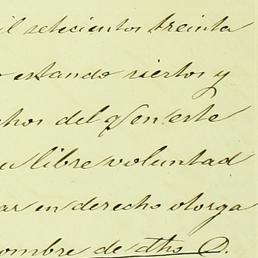 il setecientos treinta
estando siertos y
chos del qͤ en este
u libre voluntad
ar en derecho otorga
ombre de dho D.